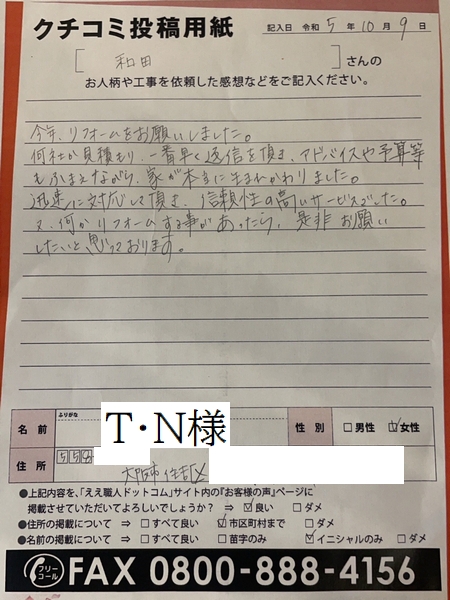 クチコミ投稿用紙
記入日 令和 5 年 10 月 9 日
[ 和田 ] さんの
お人柄や工事を依頼した感想などをご記入ください。
今年、リフォームをお願いしました。
何社か見積もり、一番早く返信を頂き、アドバイスや予算等
もふまえながら、家が本当に生まれかわりました。
迅速に対応して頂き、信頼性の高いサービスでした。
又、何かリフォームする事があったら、是非お願い
したいと思っております。
ふりがな
名前 T・N様 性別 □男性 ☑女性
住所 558
大阪市住吉区
●上記内容を、「ええ職人ドットコム」サイト内の『お客様の声』ページに
掲載させていただいてよろしいでしょうか? ⇒ ☑良い □ダメ
●住所の掲載について ⇒ □すべて良い ☑市区町村まで □ダメ
●名前の掲載について ⇒ □すべて良い □苗字のみ ☑イニシャルのみ □ダメ
フリーコール FAX 0800-888-4156